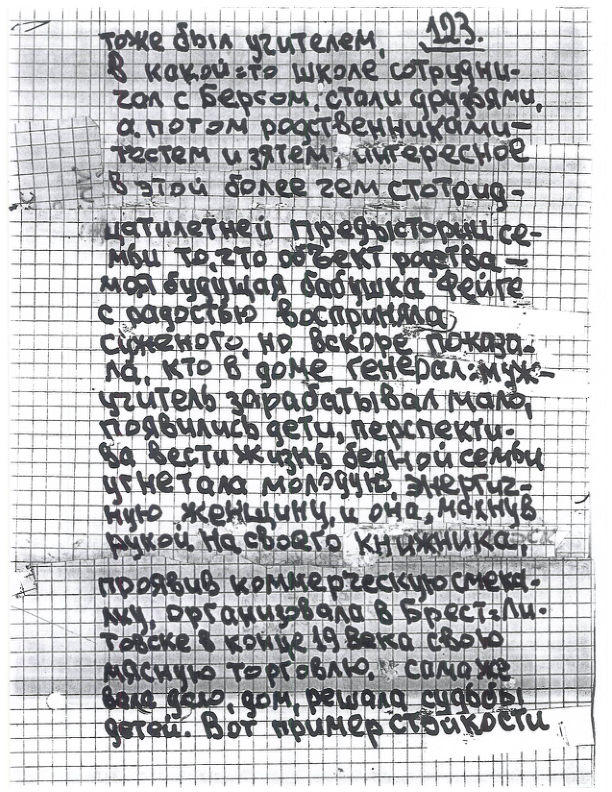 123.
тоже был учителем,
В какой-то школе сотрудни-
чал с Берсом, стали друзьями,
а потом родственниками-
тестем и зятем; интересное
в этой более чем стотрид-
цатилетней предыстории се-
мьи то, что объект родства-
моя будущая бабушка Фейге
с радостью восприняла
суженого, но вскоре показа-
ла, кто в доме генерал: муж-
учитель зарабатывал мало,
появились дети, перспекти-
ва вести жизнь бедной семьи
угнетала молодую, энергич-
ную женщину, и она, махнув
рукой на своего книжника,
проявив коммерческую смека-
лку, организовала в Брест-Ли-
товске в конце 19 века свою
мясную торговлю, сама же
вела дело, дом, решала судьбы
детей. Вот пример стойкости